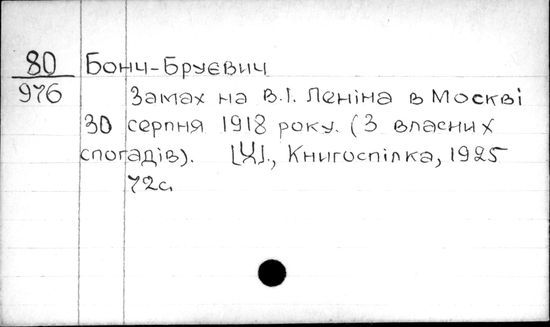 80 Бонч-Бруєвич
976 Замах на В.І. Леніна в Москві
30 серпня 1918 року. (З власних
спогадів). [Х]., Книгоспілка, 1925
72с.